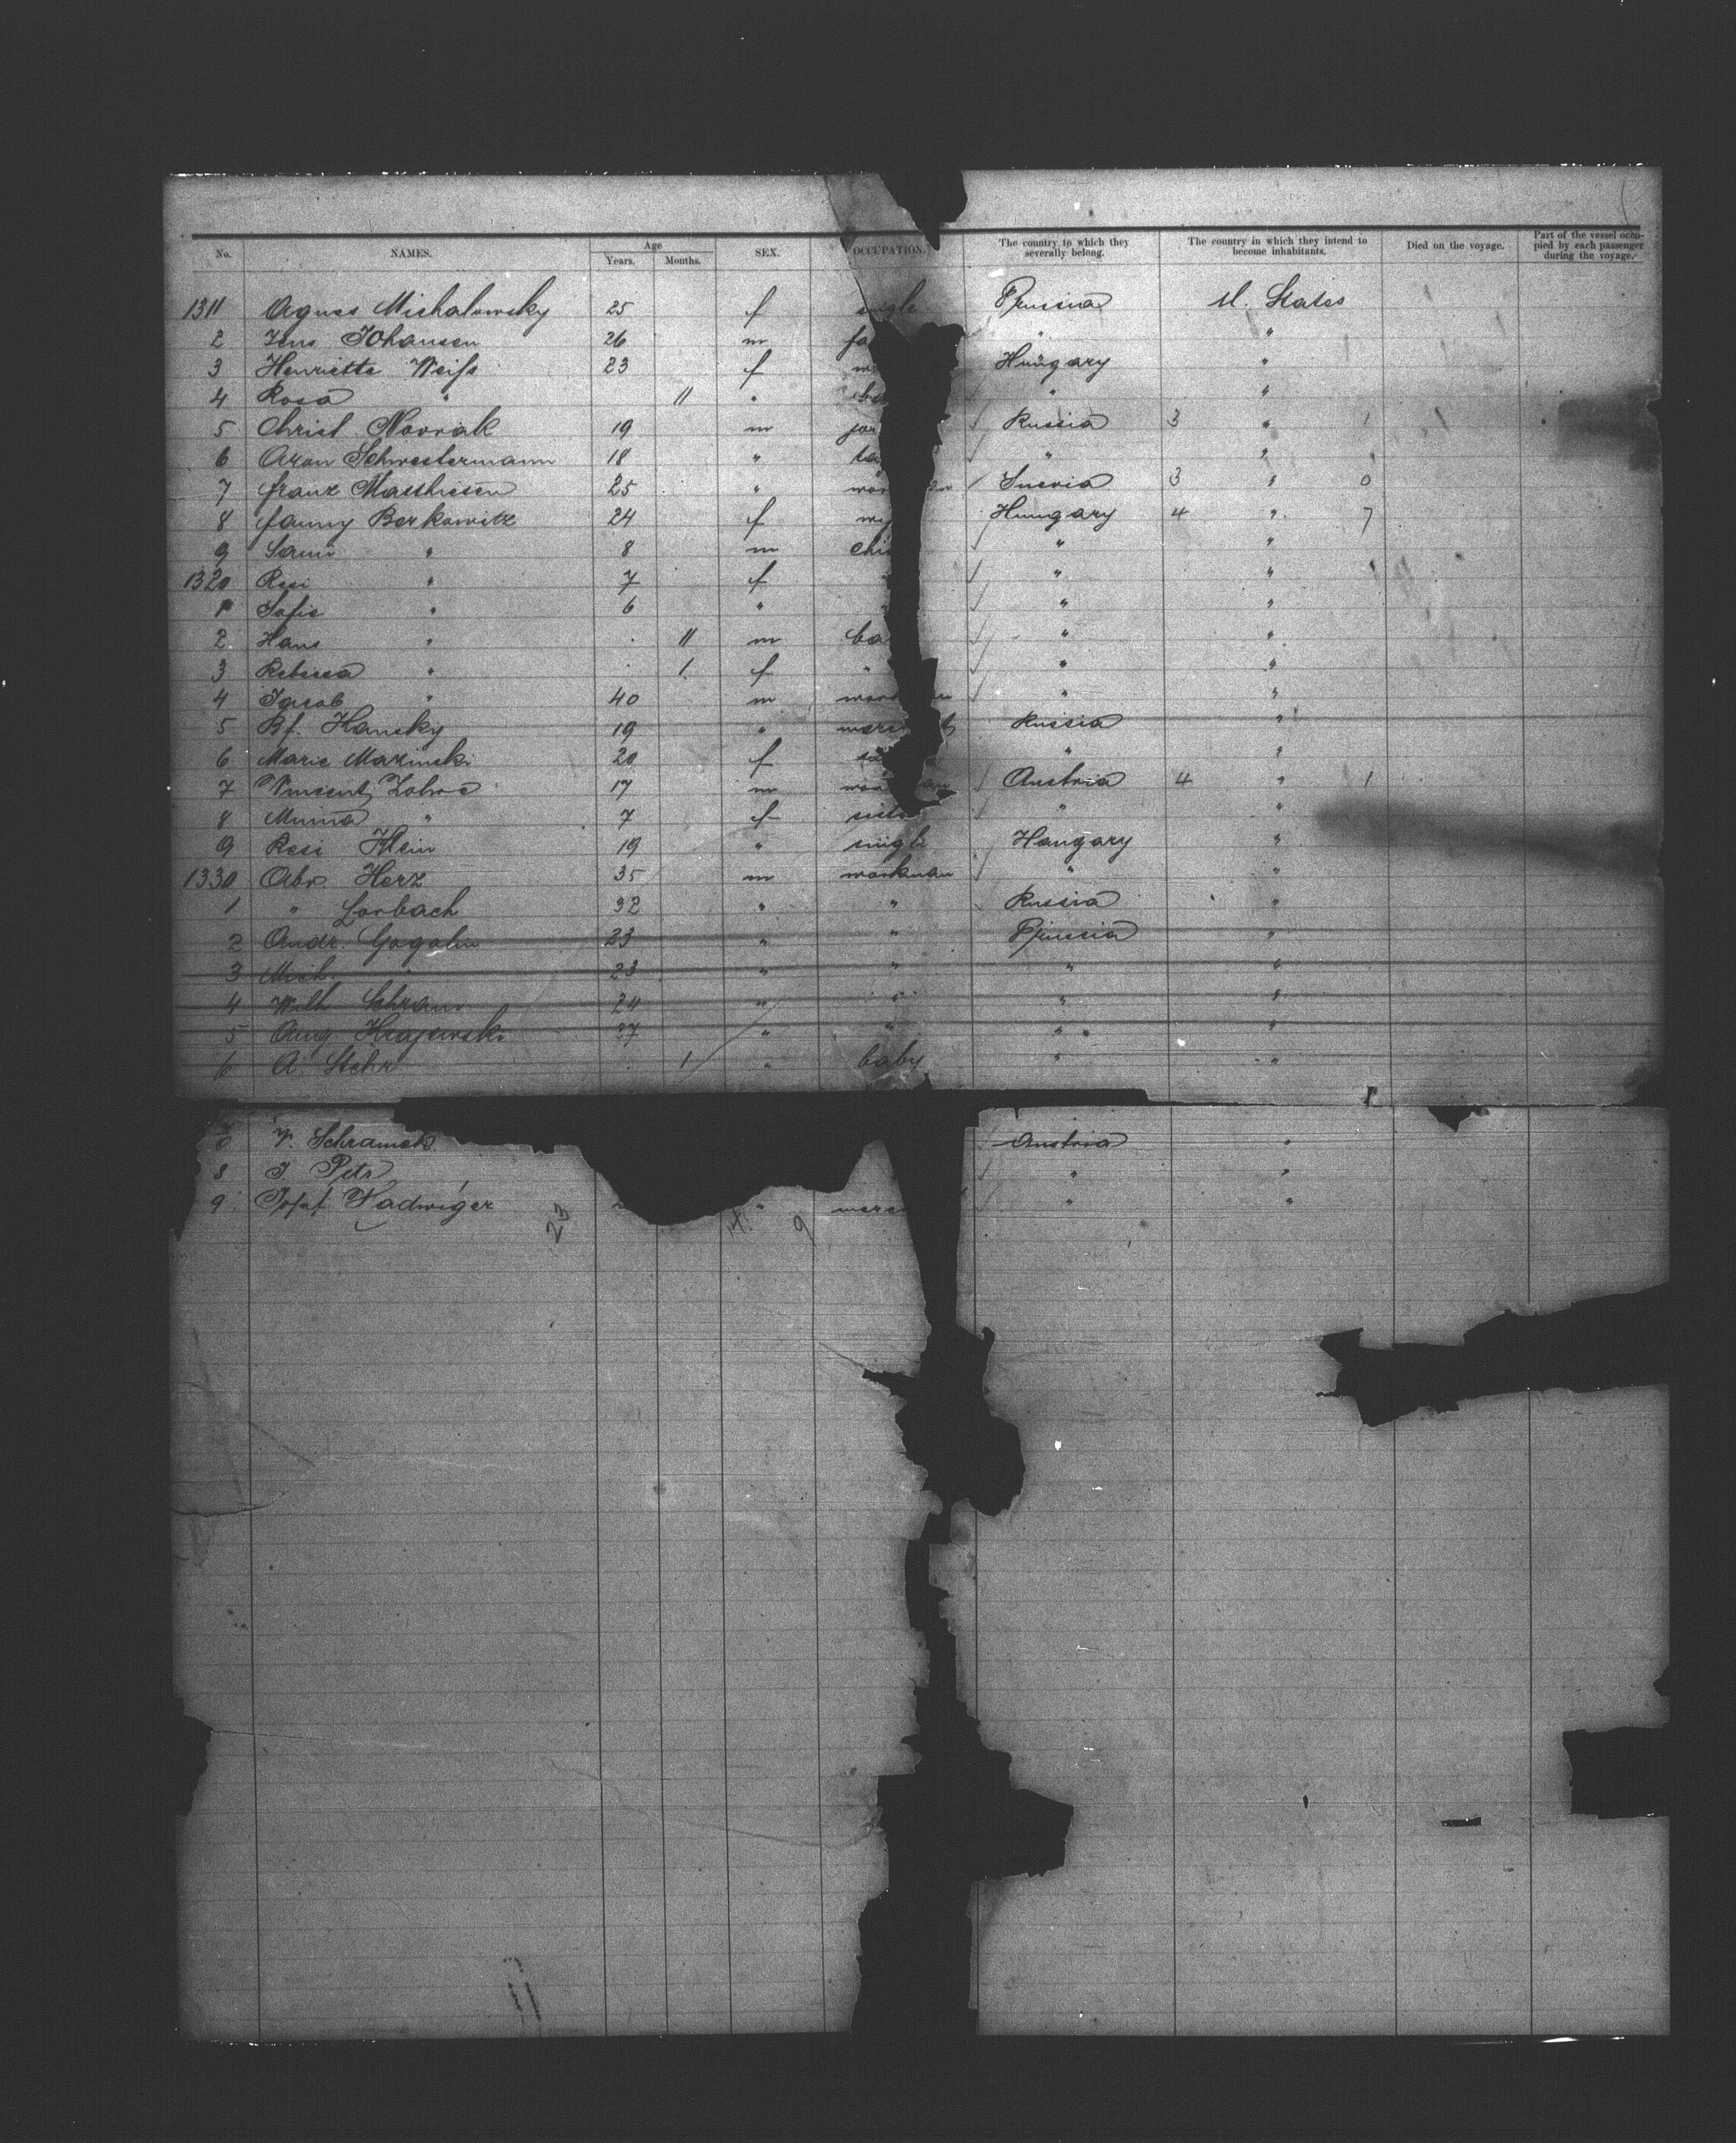 No. NAMES. Age Years. Months. SEX. OCCUPATION. The country to which they severally belong. The country in which they intend to become inhabitants. Died on the voyage. Part of the vessel occupied by each passenger during the voyage.
1311 Agnes Michalowsky 25 f single Prussia U. States
2 Jens Johansen 26 m fa " "
3 Henriette Weiſs 23 f Hungary "
4 Rosa " 11 " " "
5 Christ Novrak 19 m Russia 3 " 1
6 Aron Schwestermann 18 " ta " "
7 franz Matthiesen 25 " wor 3 " 0
8 fanny Berkowitz 24 f Hungary 4 " 7
9 Sami " 8 m chi " "
1320 Resi " 7 f " "
1 Sofie " 6 " " "
2 Hans " 11 m ba " "
3 Rebecca " 1 f " " "
4 Jacob " 40 m work " "
5 Bf. Hansky 19 " merc Russia "
6 Marie Mazinski 20 f " "
7 Vincent 17 m wor an Austria 4 " 1
8 " 7 f siste " "
9 Resi Klein 19 " single Hungary "
1330 Abr. Herz 35 m workman " "
1 " Lorbach 32 " " Russia "
2 Andr. Gogolin 23 " " Prussia "
3 Mich. " 23 " " " "
4 Wilh Schramm 24 " " " "
5 Aug Krajewski 27 " " " "
6 A. Stehr 1 " baby " "
V. Schramek Austria "
8 J. Petr " "
9 Josef Fadwiger " merc " "
23 14 9
11